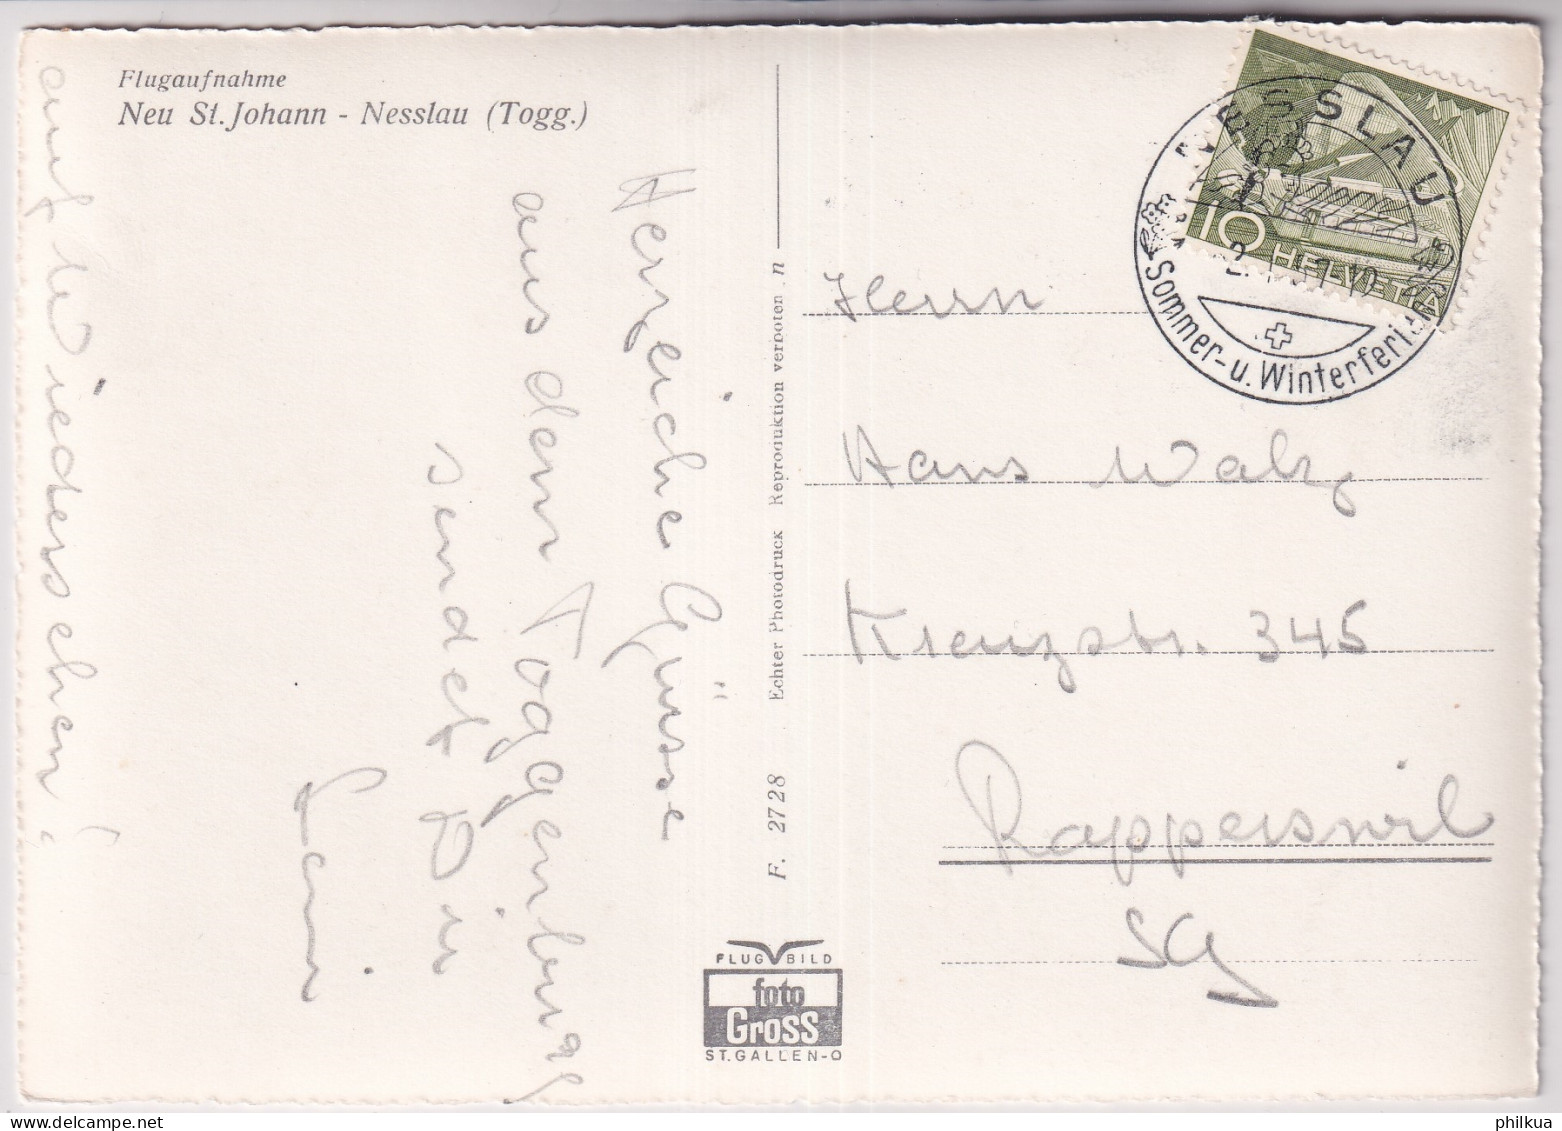 Flugaufnahme
Neu St. Johann - Nesslau (Togg.)
Herzliche Grüsse
aus dem Toggenburg
sendet Dir
auf Wiedersehen!
F. 2728 Echter Photodruck Reproduktion verboten
FLUG BILD
foto
Gross
ST. GALLEN-O
NESSLAU
Sommer- u. Winterferien
10
HELVETIA
Herrn
Hans Walz
Kreuzstr. 345
Rapperswil
SG
philkua.com